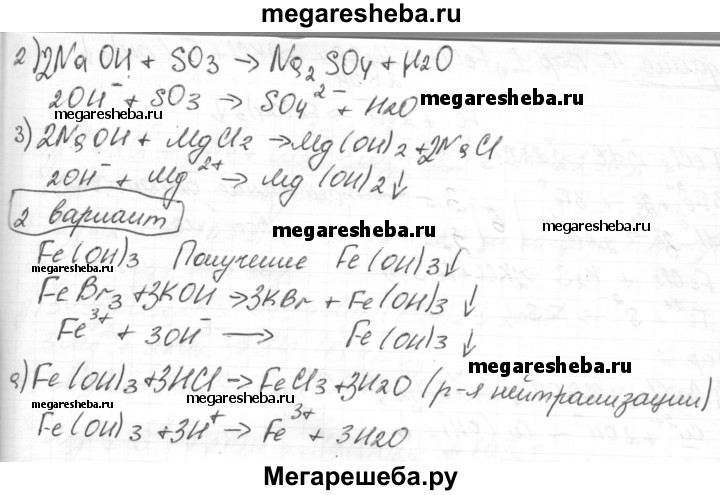 megaresheba.ru
2) 2NaOH + SO3 → Na2SO4 + H2O
2OH⁻ + SO3 → SO4²⁻ + H2O megaresheba.ru
3) 2NaOH + MgCl2 → Mg(OH)2 + 2NaCl
2OH⁻ + Mg²⁺ → Mg(OH)2↓
megaresheba.ru
2 вариант
megaresheba.ru megaresheba.ru
Fe(OH)3 Получение Fe(OH)3↓
megaresheba.ru
FeBr3 + 3KOH → 3KBr + Fe(OH)3↓
Fe³⁺ + 3OH⁻ → Fe(OH)3↓
megaresheba.ru
а) Fe(OH)3 + 3HCl → FeCl3 + 3H2O (р-я нейтрализации)
megaresheba.ru megaresheba.ru
Fe(OH)3 + 3H⁺ → Fe³⁺ + 3H2O
Мегарешеба.ру